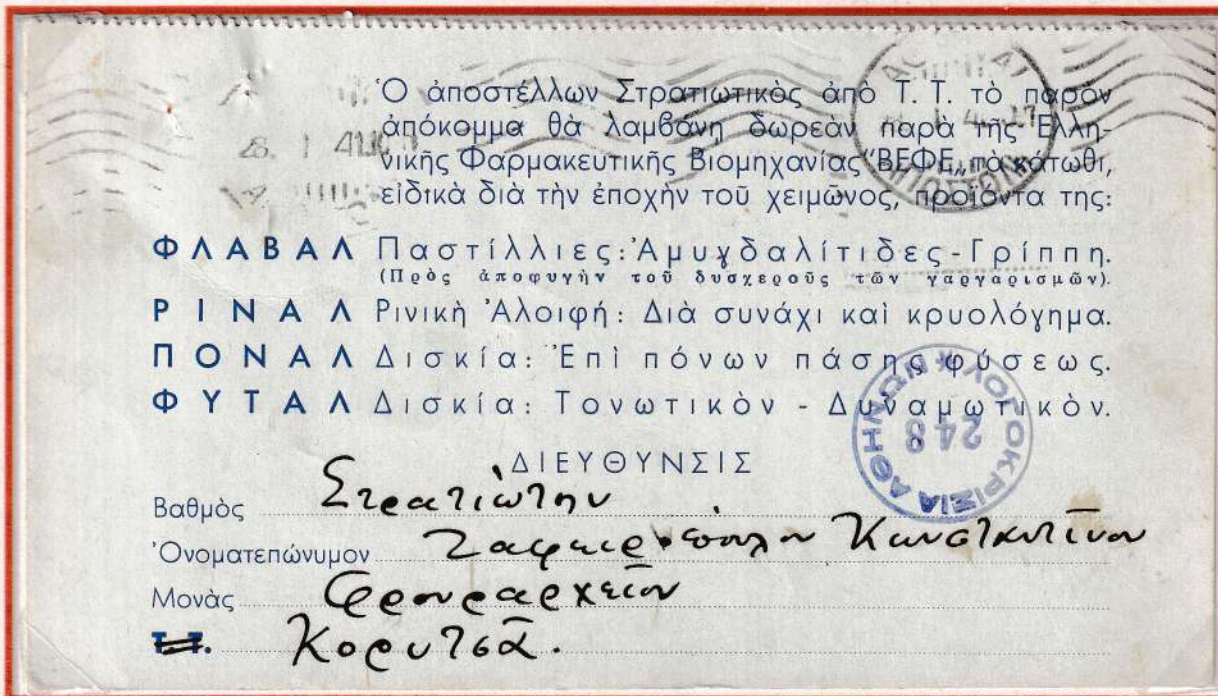 Ὁ ἀποστέλλων Στρατιωτικὸς ἀπὸ Τ. Τ. τὸ παρὸν
ἀπόκομμα θὰ λαμβάνη δωρεὰν παρὰ τῆς Ἑλλη-
νικῆς Φαρμακευτικῆς Βιομηχανίας "ΒΕΦΕ„ τὰ κάτωθι,
εἰδικὰ διὰ τὴν ἐποχὴν τοῦ χειμῶνος, προϊόντα της:
28. 1 41
ΦΛΑΒΑΛ Παστίλλιες: Ἀμυγδαλίτιδες - Γρίππη.
(Πρὸς ἀποφυγὴν τοῦ δυσχεροῦς τῶν γαργαρισμῶν).
ΡΙΝΑΛ Ρινικὴ Ἀλοιφή: Διὰ συνάχι καὶ κρυολόγημα.
ΠΟΝΑΛ Δισκία: Ἐπὶ πόνων πάσης φύσεως.
ΦΥΤΑΛ Δισκία: Τονωτικὸν - Δυναμωτικὸν.
ΛΟΓΟΚΡΙΣΙΑ ΑΘΗΝΩΝ
248
ΔΙΕΥΘΥΝΣΙΣ
Βαθμὸς Στρατιώτην
Ὀνοματεπώνυμον Ζαφειρόπουλον Κωνσταντῖνον
Μονὰς Φρουραρχεῖον
Τ. Τ. Κορυτσᾶ.